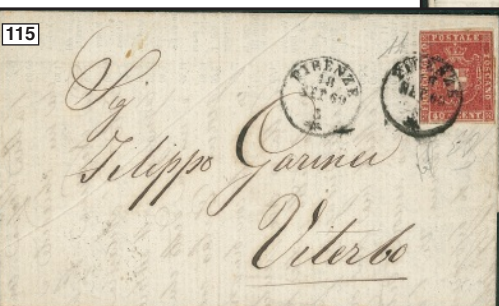 115
FIRENZE
18
SET 60
FIRENZE
18
SET 60
POSTALE
TOSCANO
40 CENT
Sig
Filippo Garinei
Viterbo